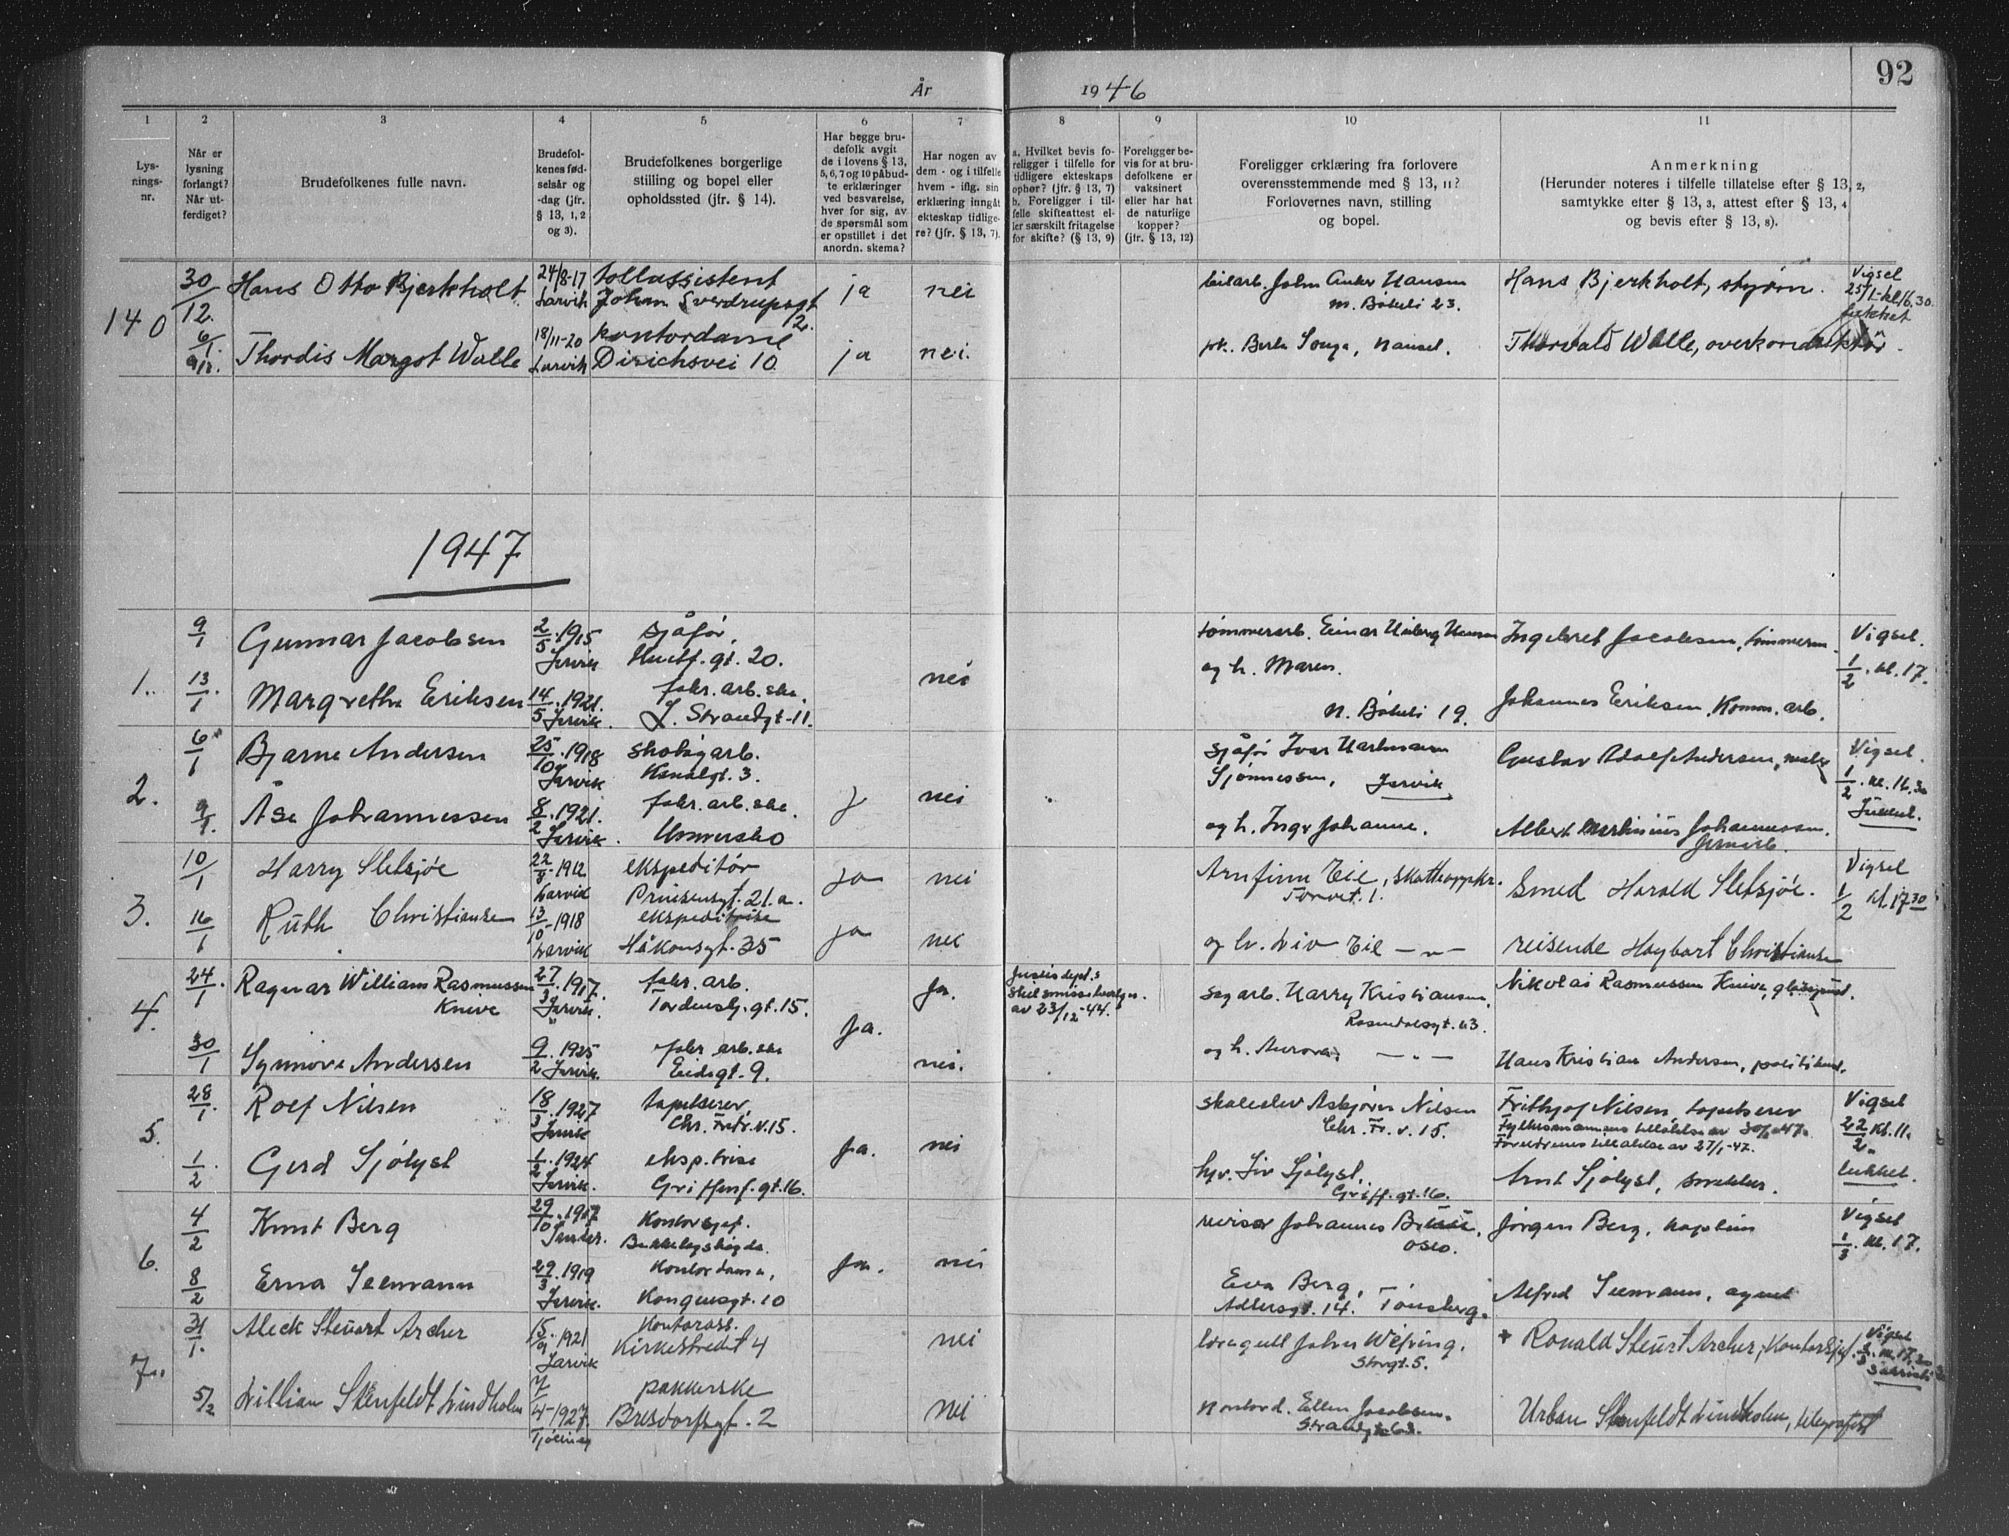 92
År 1946
1 2 3 4 5 6 7 8 9 10 11
Lys-
nings-
nr.
Når er
lysning
forlangt?
Når ut-
ferdiget?
Brudefolkenes fulle navn.
Brudefol-
kenes fød-
selsår og
-dag (jfr.
§ 13, 1, 2
og 3).
Brudefolkenes borgerlige
stilling og bopel eller
opholdssted (jfr. § 14).
Har begge bru-
defolk avgit
de i lovens § 13,
5, 6, 7 og 10 påbud-
te erklæringer
ved besvarelse,
hver for sig, av
de spørsmål som
er opstillet i det
anordn. skema?
Har nogen av
dem - og i tilfelle
hvem - iflg. sin
erklæring inngått
ekteskap tidlige-
re? (jfr. § 13, 7).
a. Hvilket bevis fo-
religger i tilfelle for
tidligere ekteskaps
ophør? (jfr. § 13, 7)
b. Foreligger i til-
felle skifteattest el-
ler særskilt fritagelse
for skifte? (§ 13, 9)
Foreligger be-
vis for at bru-
defolkene er
vaksinert
eller har hat
de naturlige
kopper?
(jfr. § 13, 12)
Foreligger erklæring fra forlovere
overensstemmende med § 13, 11?
Forlovernes navn, stilling
og bopel.
Anmerkning
(Herunder noteres i tilfelle tillatelse efter § 13, 2,
samtykke efter § 13, 3, attest efter § 13, 4
og bevis efter § 13, 8).
140
30/12.
Hans Otto Bjerkholt
24/8-17
Larvik
tollassistent
Johan Sverdrupsgt
2.
ja
nei
John Anker Hansen
m. Bøkeli 23.
Hans Bjerkholt,
Vigsel
25/1-kl. 16.30
6/1
9/1.
Thordis Margot Walle
18/11-20
Larvik
kontordame
Dirichsvei 10
ja
nei.
Thorvald Walle, overkonduktør.
1947
1.
9/1
Gunnar Jacobsen
2/5.1915
Larvik
sjåfør.
gt. 20.
tømmerarb. Einar
og h. Maren.
N. Bøkeli 19.
Ingebret Jacobsen, tømmerm.
Vigsel.
1/2. kl. 17.
13/1.
Margrethe Eriksen
14/5.1921.
Larvik.
fabr. arb. ske.
L. Strandgt-11.
nei
Johannes Eriksen, Komm. arb.
2.
6/1
Bjarne Andersen
25/10.1918
Larvik
Kanalgt. 3.
sjåfør Ivar
Larvik
Gustav Adolf Andersen,
Vigsel.
1/2. kl. 16.30
9/1.
Åse Johannessen
8/2.1921.
Larvik.
fabr. arb. ske.
nei
og h. Inga Johanne.
Albert Martinius Johannessen.
3.
10/1
Harry Sletsjøe
22/8-1912
Larvik
ekspeditør
Prinsensgt. 21.a.
ja
nei
Arnfinn Eie,
Torvet 1.
Smed Harald Sletsjøe.
Vigsel
1/2 kl. 17 30
16/1
Ruth Christiansen
13/10-1918
Larvik
ekspeditrise
Håkonsgt. 35
ja
nei
og hv. Liv Eie — " —
reisende Hagbart Christiansen
4.
24/1.
Ragnar William Rasmussen
Knive
27/3.1917.
Larvik.
fabr. arb.
Tordenskj. gt. 15.
Ja.
Justisdept.s
av 23/12-44.
Harry Kristiansen,
Rosendalsgt. 23.
Nikolai Rasmussen Knive,
30/1
Synnøve Andersen
9/2.1925
Larvik.
fabr. arb. ske
Eidsgt. 9.
Ja.
nei.
og h. Aurora. — " —
Hans Kristian Andersen, politibetj.
5.
28/1.
Rolf Nilsen
18/3.1927
Larvik
tapetserer,
Chr. Fredr. v. 15.
skoleelev Asbjørn Nilsen
Chr. Fr. v. 15.
Frithjof Nilsen, tapetserer
Foreldrenes tillatelse av 27/1-47.
Vigsel
22/2. kl. 11.
lukket.
1/2
Gerd Sjølyst
1/2.1924
Larvik.
eksp. trise
Griffenf. gt. 16.
Ja.
nei
hv. Liv Sjølyst,
Griff. gt. 16.
Arnt Sjølyst, snekker.
6.
4/2
Knut Berg
29/10.1917
Kontorsjef.
revisor Johannes
Oslo.
Jørgen Berg, kaptein
Vigsel
1/3. kl. 17.
8/2
Erna Seemann
29/3.1919
Larvik.
Kontordame,
Kongensgt. 10
Ja.
nei
Eva Berg,
Adlersgt. 14. Tønsberg.
Alfred Seemann, agent
7.
31/1.
Aleck Steuart Archer
15/9 1921
Larvik
Kontorass.
Kirkestredet 4
nei
Storgt. 5.
Ronald Steuart Archer, Kontorsjef.
Vigsel
5/2
Lillian Stenfeldt Lindholm
7/4-1927.
Tjølling
pakkerske
Bredorffsgt. 2
nei
Kontord. Ellen Jacobsen.
Strandgt. 63.
Urban Stenfeldt Lindholm, telegrafist